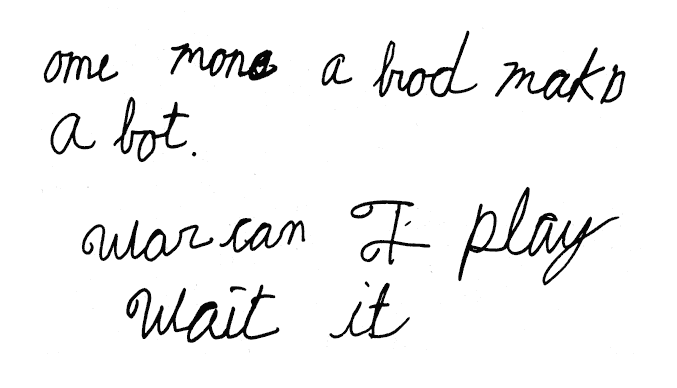 ome mone a brod makes
a bot.
war can I play
wait it